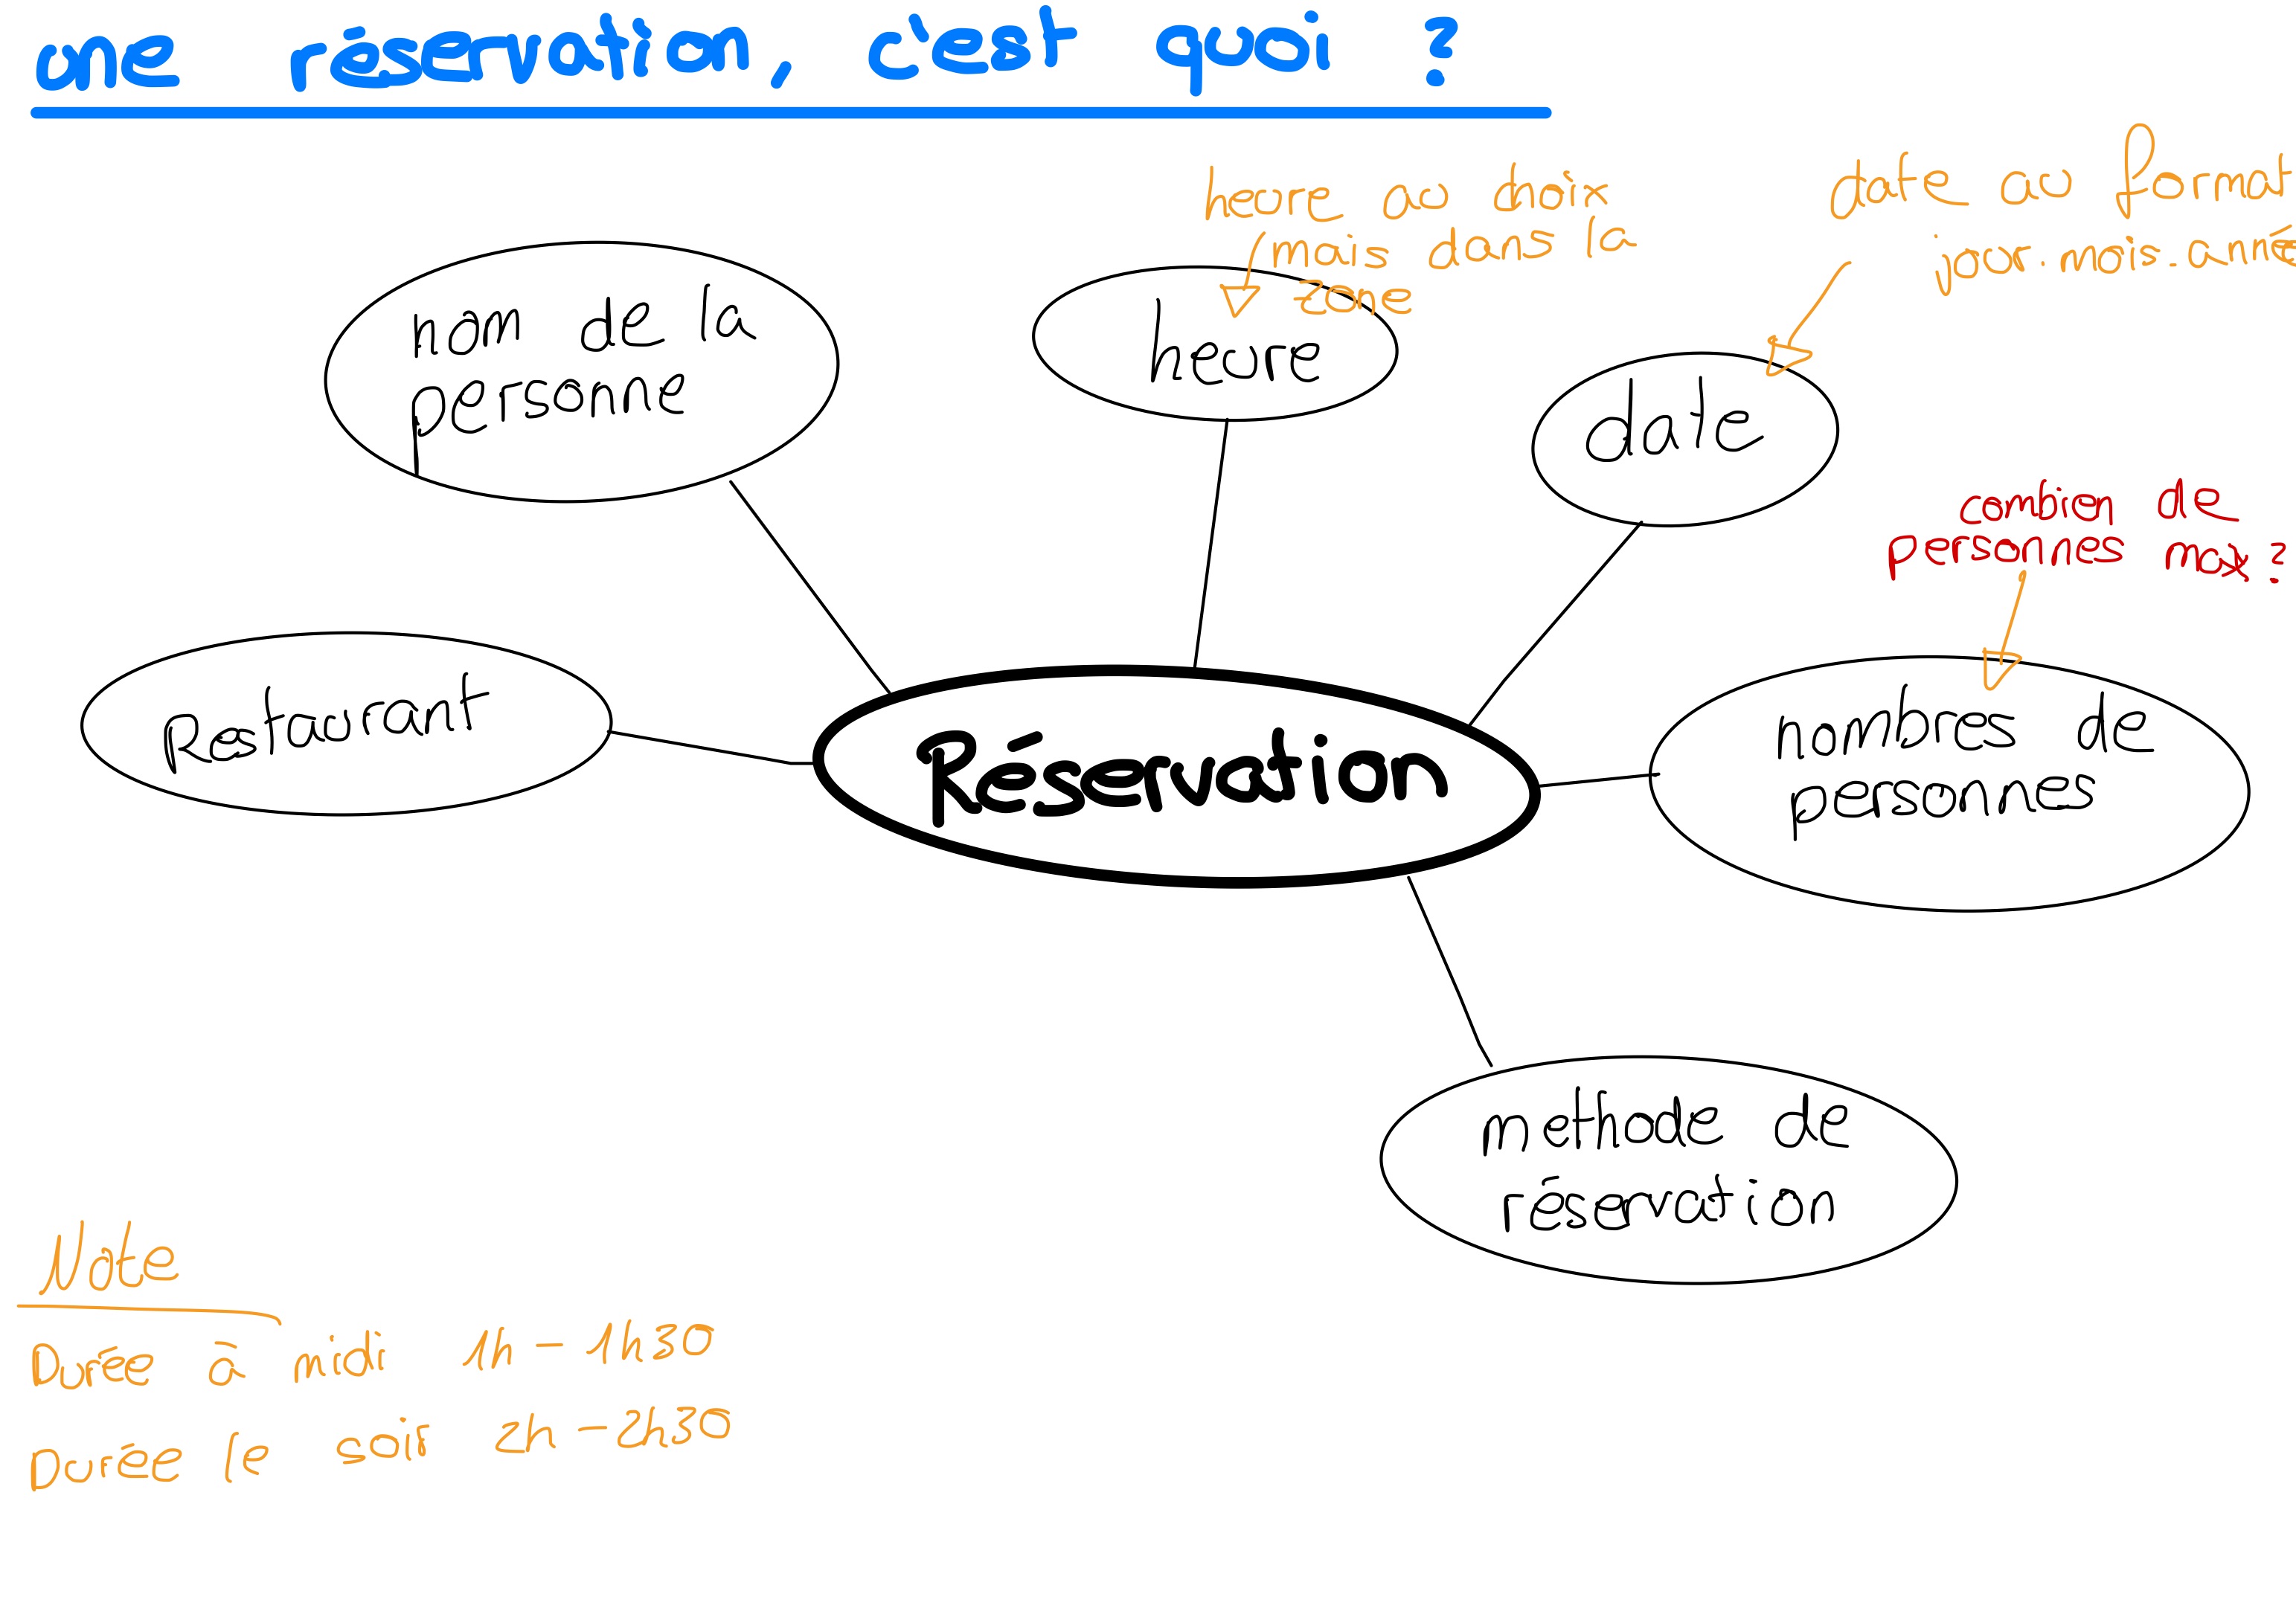 une réservation, c'est quoi ?
heure au choix
(mais dans la
zone
date au format
jour.mois.anné
nom de la
personne
heure
date
combien de
personnes max ?
Restaurant
Réservation
nombres de
personnes
méthode de
réservation
Note
Durée à midi 1h - 1h30
Durée le soir 2h - 2h30